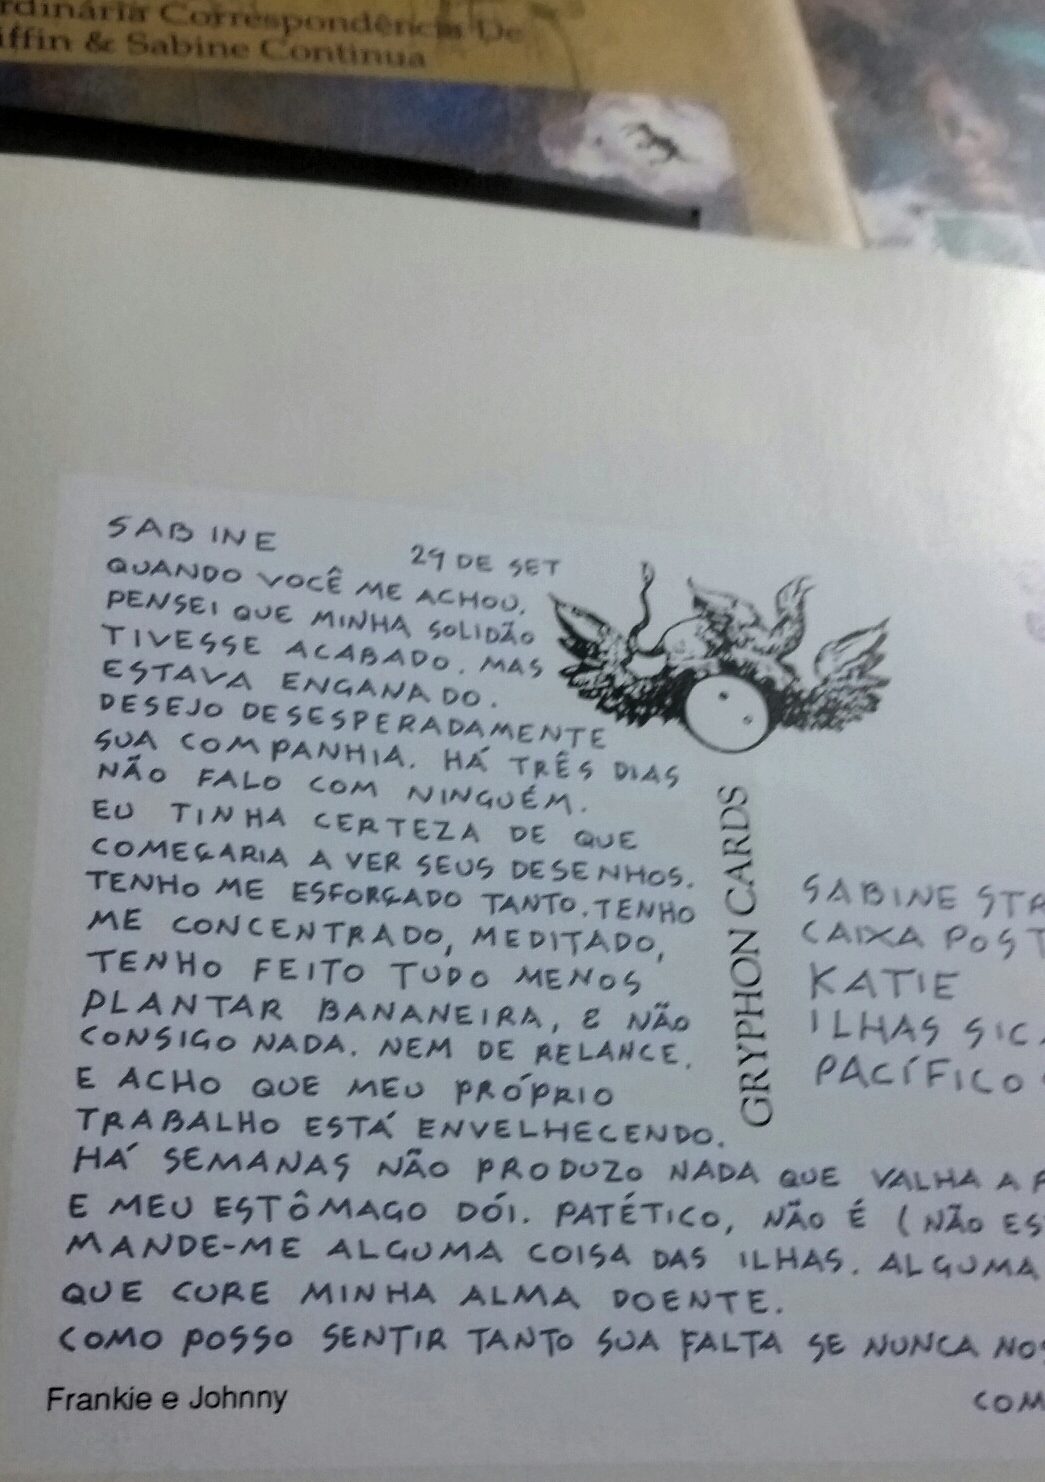 Correspondência De
& Sabine Continua
SABINE
29 DE SET
QUANDO VOCÊ ME ACHOU,
PENSEI QUE MINHA SOLIDÃO
TIVESSE ACABADO. MAS
ESTAVA ENGANADO.
DESEJO DESESPERADAMENTE
SUA COMPANHIA. HÁ TRÊS DIAS
NÃO FALO COM NINGUÉM.
EU TINHA CERTEZA DE QUE
COMEÇARIA A VER SEUS DESENHOS.
TENHO ME ESFORÇADO TANTO. TENHO
ME CONCENTRADO, MEDITADO,
TENHO FEITO TUDO MENOS
PLANTAR BANANEIRA, E NÃO
CONSIGO NADA. NEM DE RELANCE.
E ACHO QUE MEU PRÓPRIO
TRABALHO ESTÁ ENVELHECENDO.
HÁ SEMANAS NÃO PRODUZO NADA QUE VALHA A
E MEU ESTÔMAGO DÓI. PATÉTICO, NÃO É (NÃO
MANDE-ME ALGUMA COISA DAS ILHAS. ALGUMA
QUE CURE MINHA ALMA DOENTE.
COMO POSSO SENTIR TANTO SUA FALTA SE NUNCA
Frankie e Johnny
GRYPHON CARDS
SABINE
CAIXA
KATIE
ILHAS
PACÍFICO